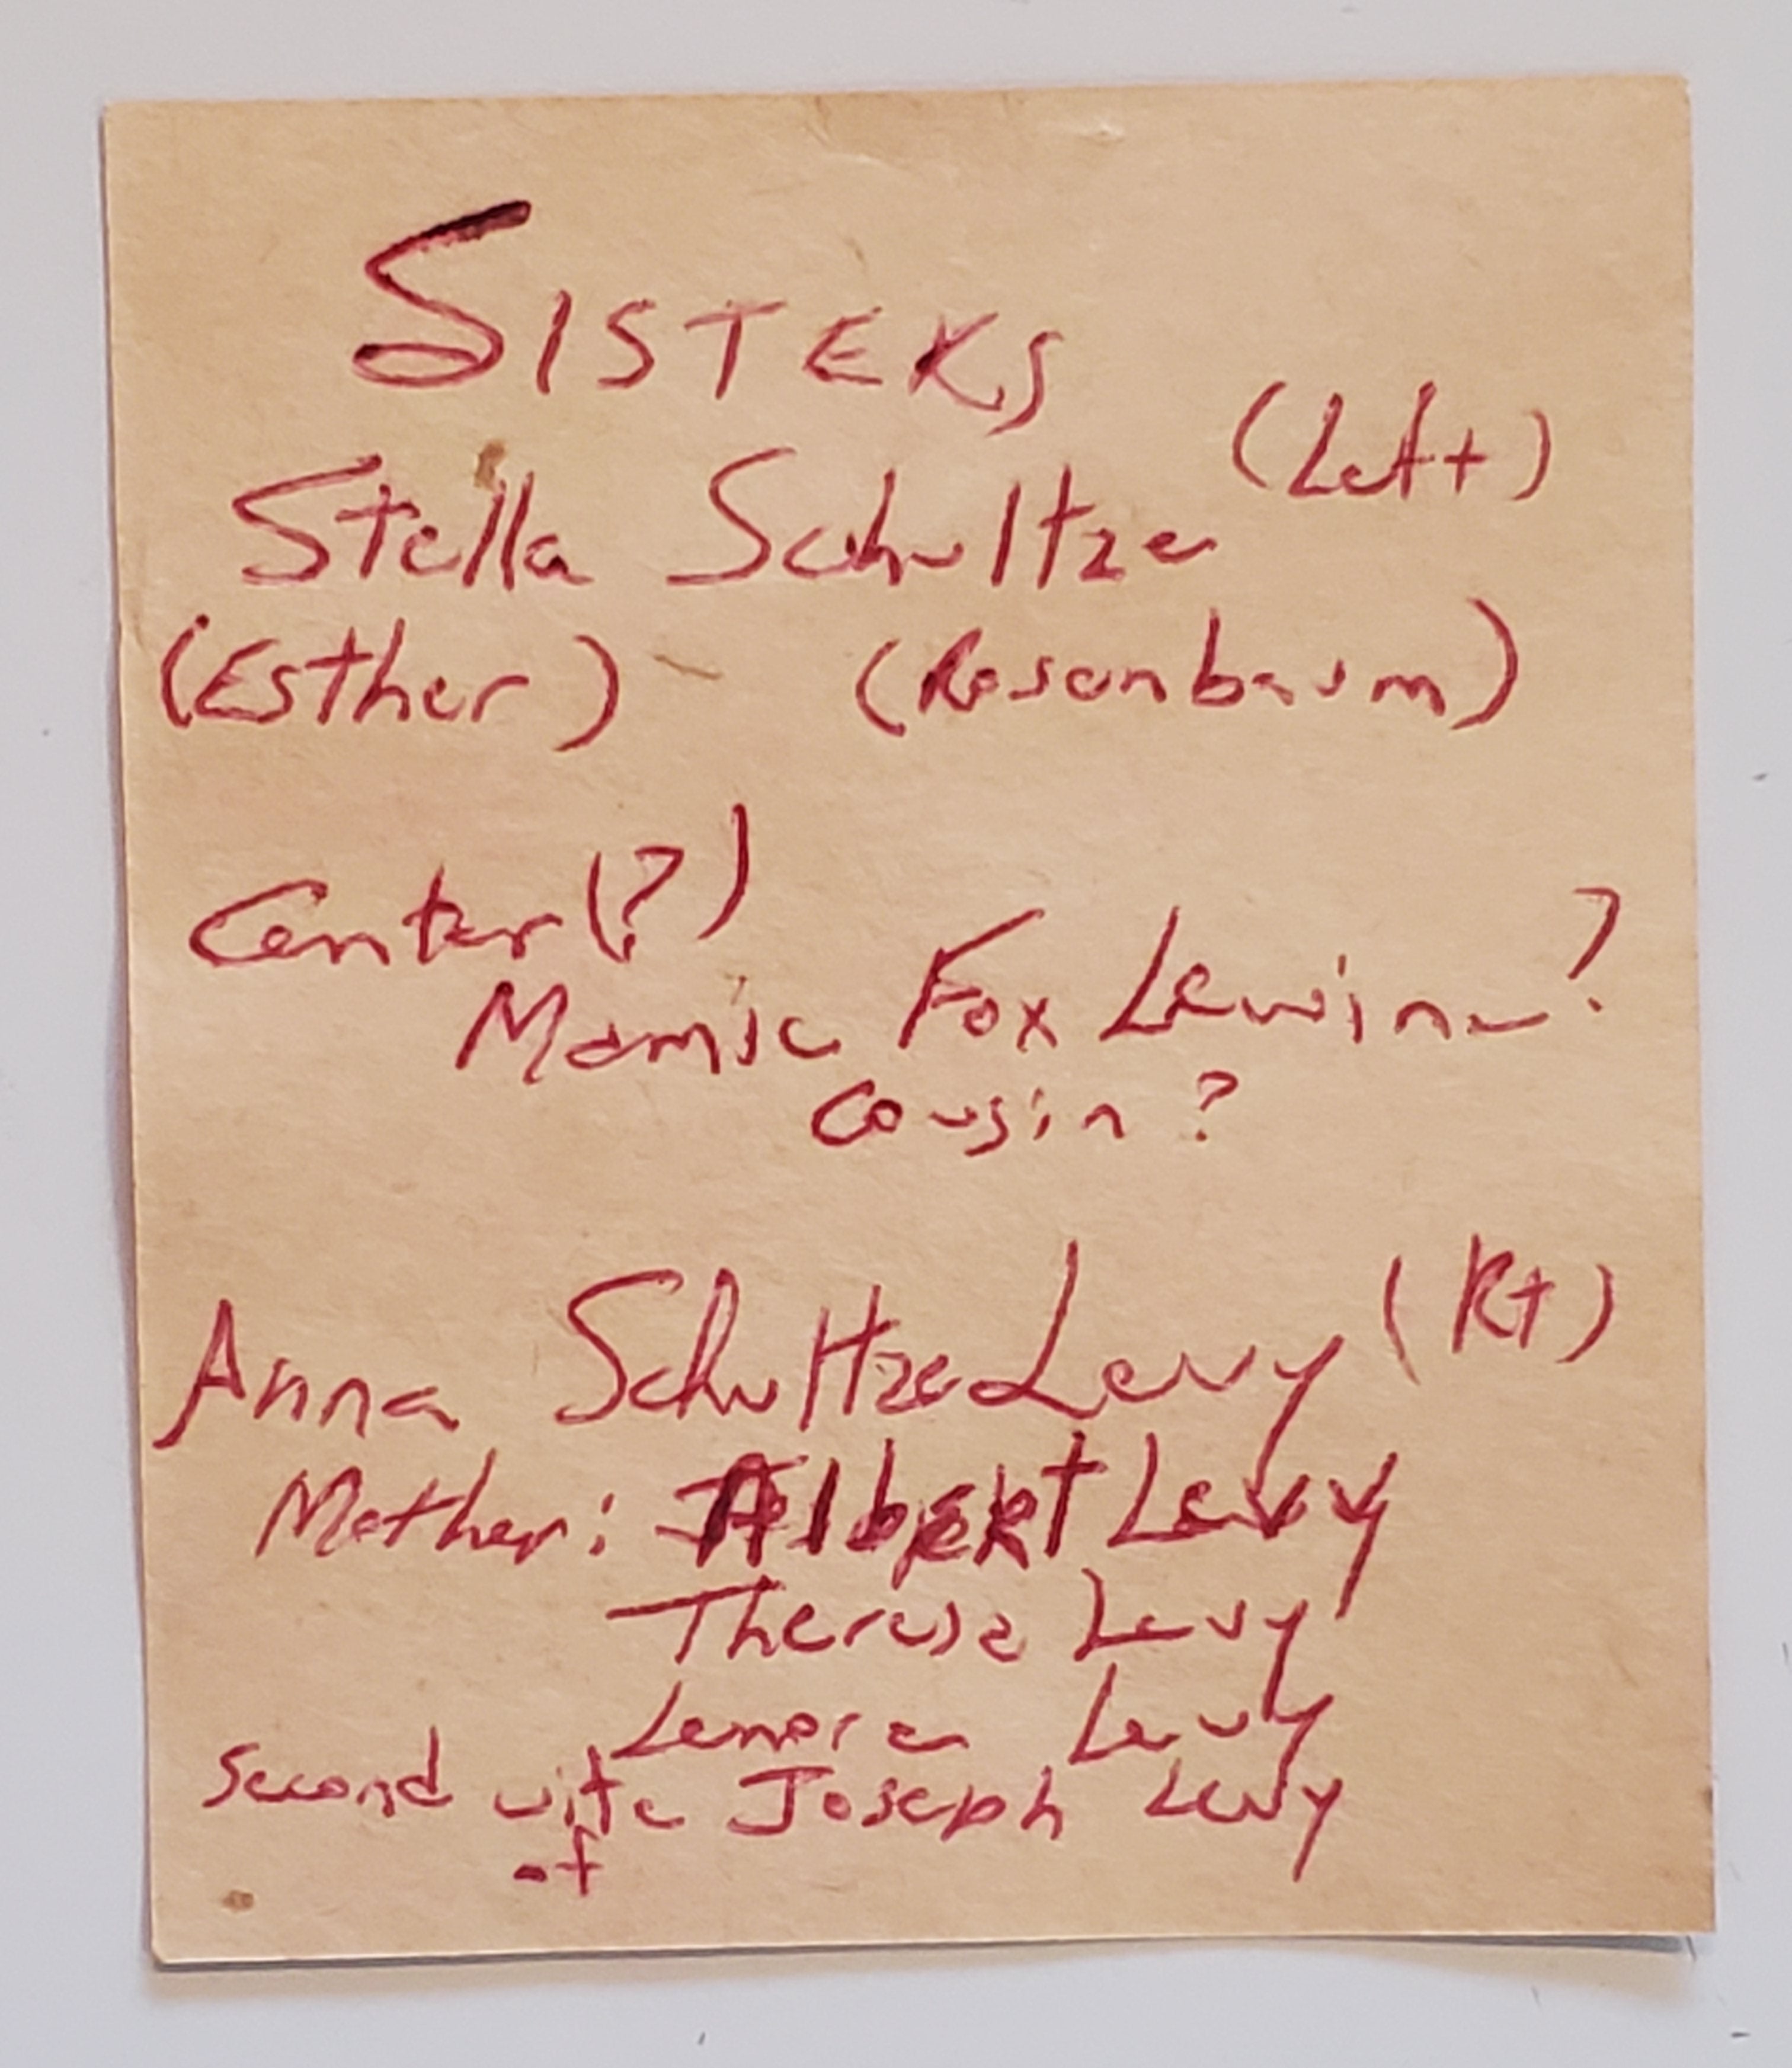 SISTERS
(Left)
Stella Schultze
(Esther) (Rosenbaum)
Center (?)
Mamie Fox Lewine?
Cousin?
Anna Schultze Levy (Rt)
Mother: Albert Levy
Therese Levy
Lenore Levy
Second wife Joseph Levy
of